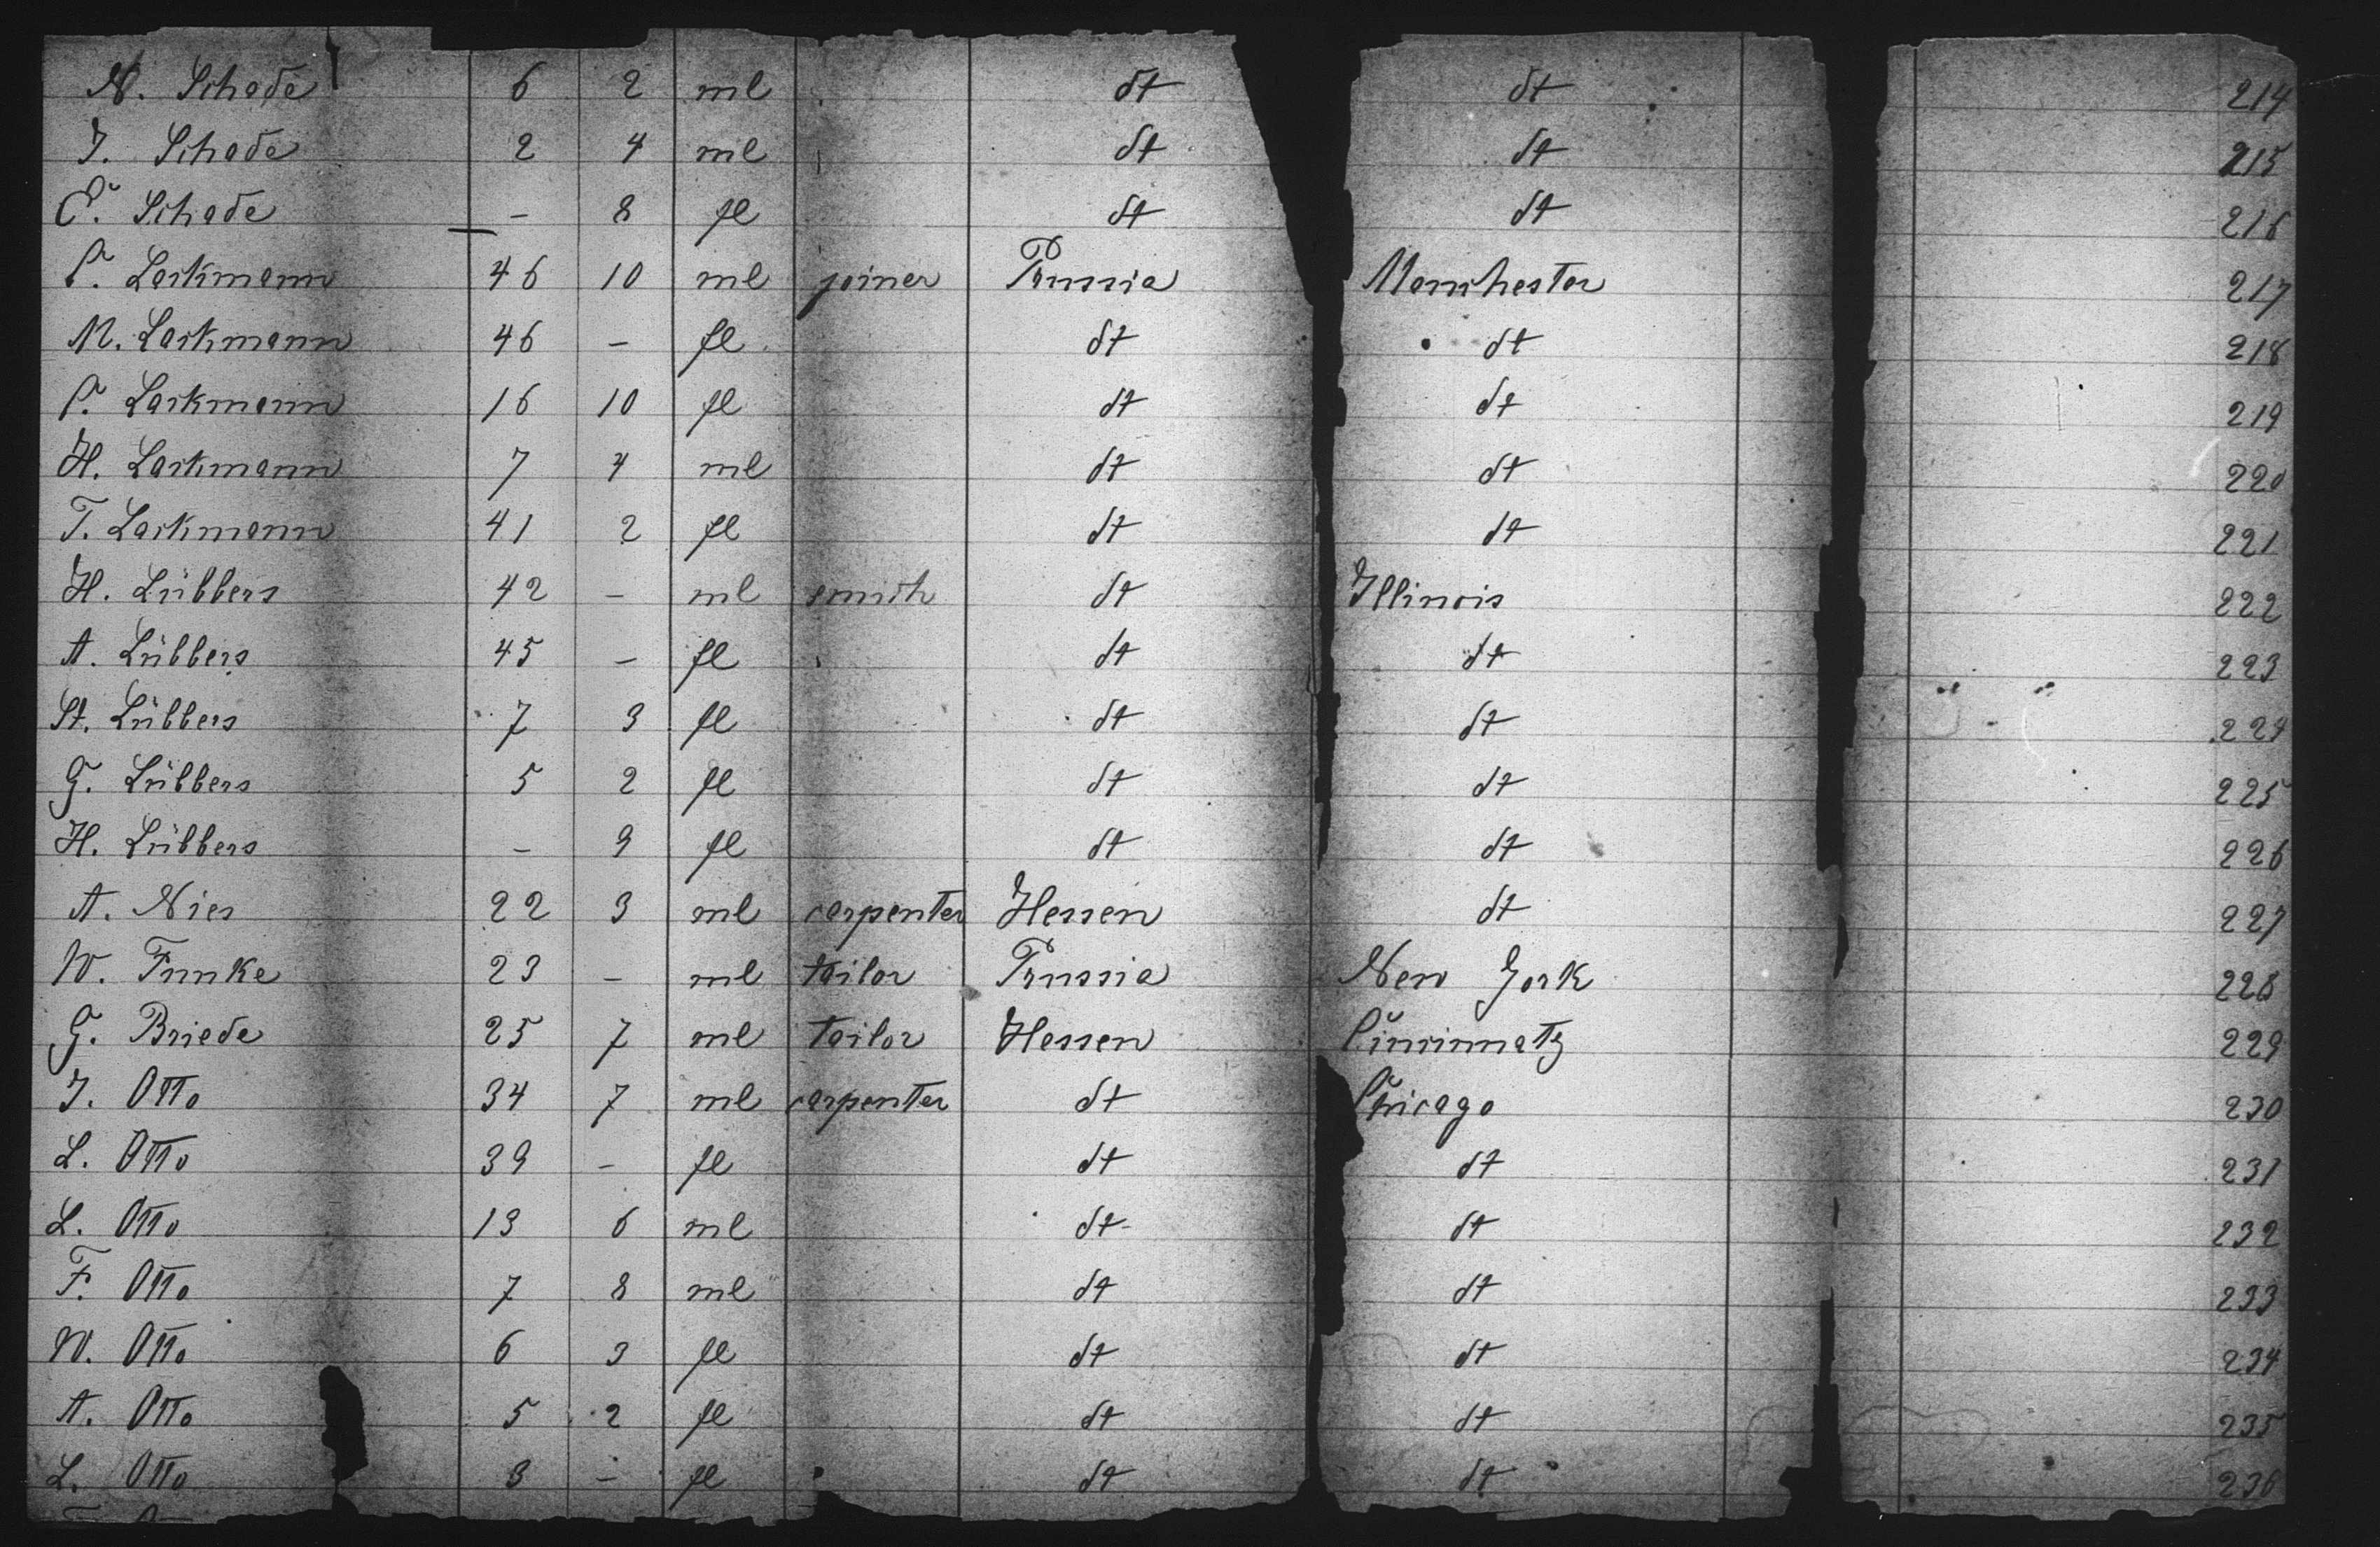 N. Schade 6 2 ml dt dt 214
J. Schade 2 4 ml dt dt 215
C. Schade – 8 fl dt dt 216
C. Lackmann 46 10 ml joiner Prussia Manchester 217
M. Lackmann 46 – fl dt dt 218
C. Lackmann 16 10 fl dt dt 219
H. Lackmann 7 4 ml dt dt 220
T. Lackmann 41 2 fl dt dt 221
H. Lübbers 42 – ml smith dt Illinois 222
A. Lübbers 45 – fl dt dt 223
St. Lübbers 7 3 fl dt dt 224
G. Lübbers 5 2 fl dt dt 225
H. Lübbers – 9 fl dt dt 226
A. Nies 22 3 ml carpenter Hessen dt 227
W. Funke 23 – ml tailor Prussia New York 228
G. Briede 25 7 ml tailor Hessen Cincinnaty 229
J. Otto 34 7 ml carpenter dt Chicago 230
L. Otto 39 – fl dt dt 231
L. Otto 13 6 ml dt dt 232
F. Otto 7 8 ml dt dt 233
W. Otto 6 3 fl dt dt 234
A. Otto 5 2 fl dt dt 235
L. Otto 3 – fl dt dt 236